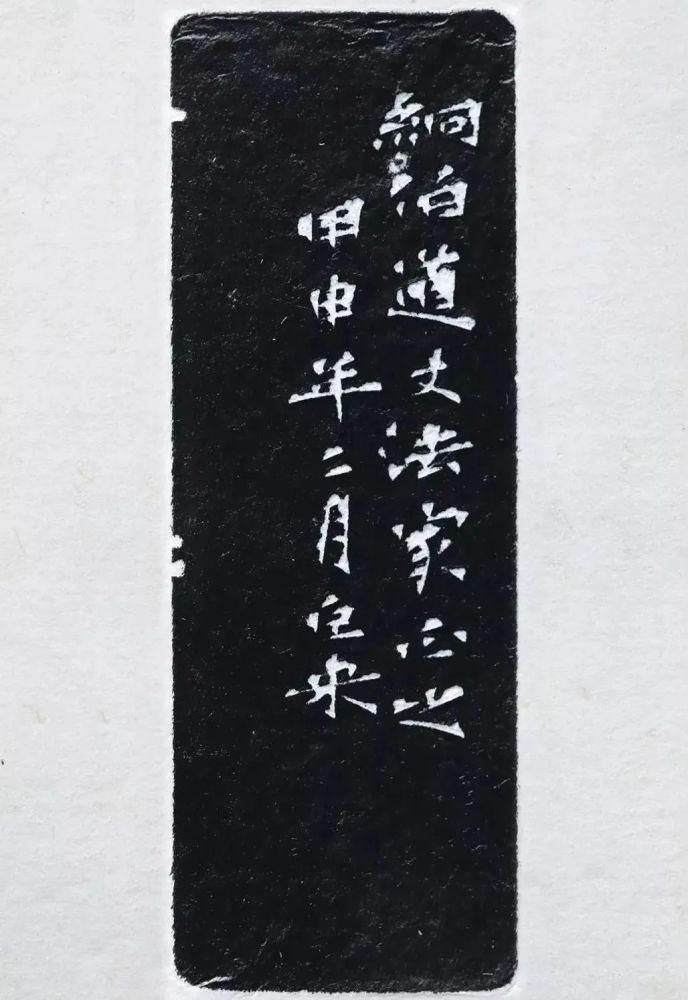 絅伯道丈法家正之
甲申年二月巨来